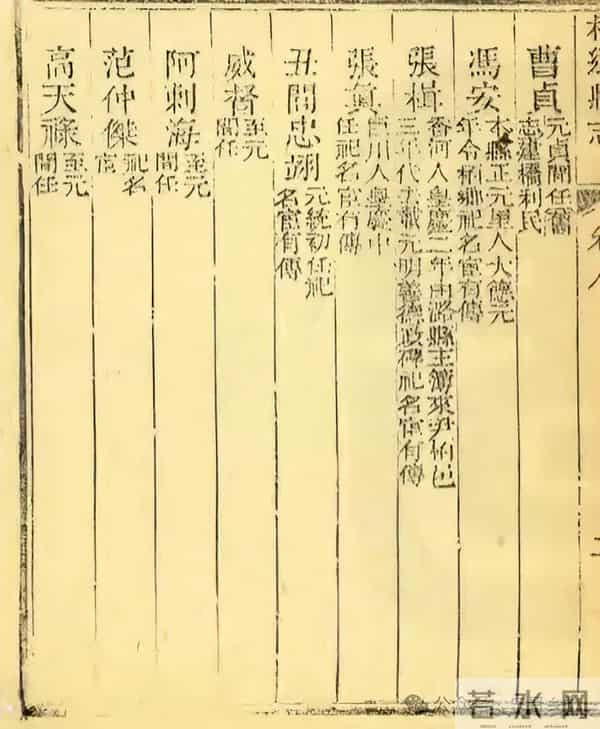 縣志
曹貞
元貞間任舊
志建橋利民
馮安
本縣正元里人大德元
年令柏鄉祀名宦有傳
張楫
香河人皇慶二年由潞縣主簿來尹柏邑
三年代去載元明善德政碑祀名宦有傳
張
川人皇慶中
任祀名宦有傳
丑閭忠翊
元統初任祀
名宦有傳
威督
至元
間任
阿剌海
至元
間任
范仲傑
祀名
宦
高天祿
至元
間任
若水网